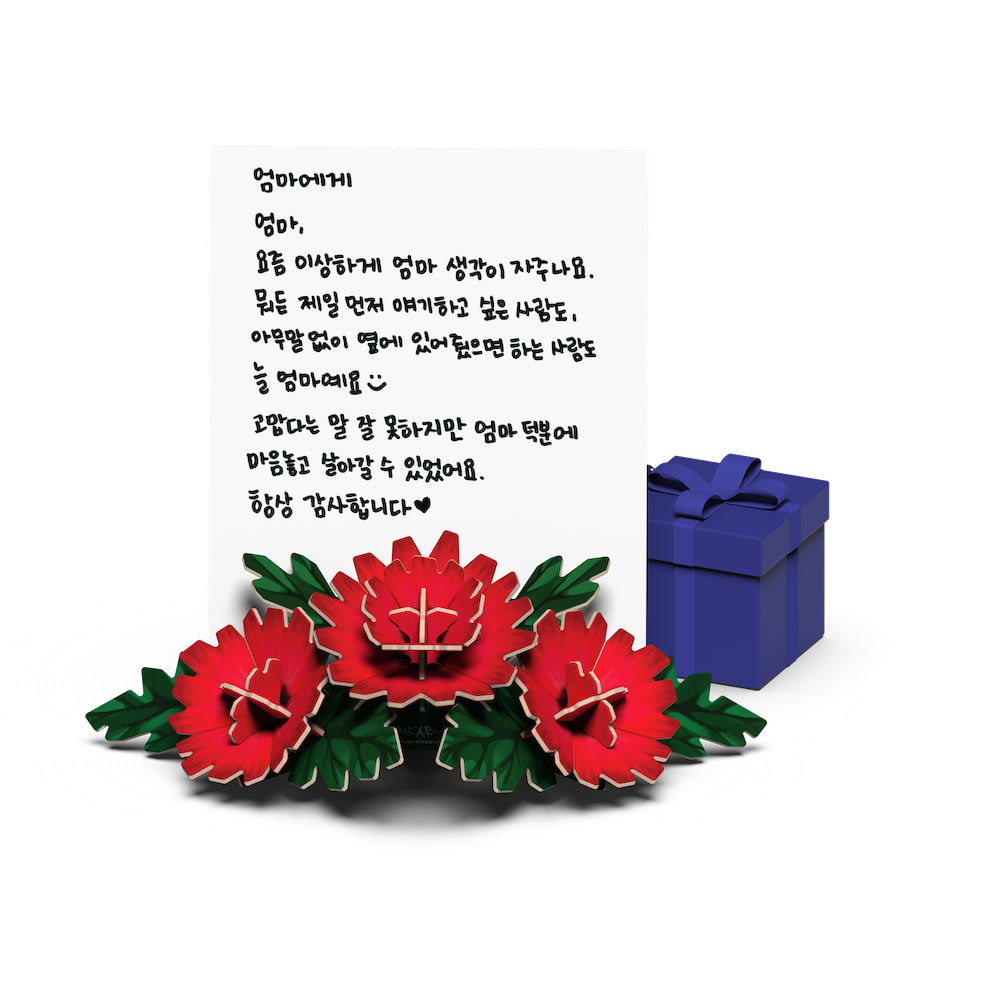 엄마에게
엄마,
요즘 이상하게 엄마 생각이 자주나요.
뭐든 제일 먼저 얘기하고 싶은 사람도,
아무말 없이 옆에 있어줬으면 하는 사람도
늘 엄마예요
고맙다는 말 잘 못하지만 엄마 덕분에
마음놓고 살아갈 수 있었어요.
항상 감사합니다♥